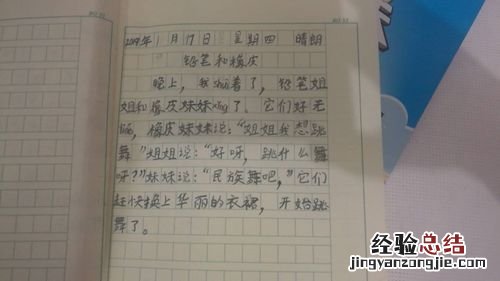 2019年1月17日 星期四 晴朗
铅笔和橡皮
晚上，我shuì着了，铅笔姐
姐和橡皮妹妹xǐng了。它们好无
liáo，橡皮妹妹说：“姐姐我想跳
舞”姐姐说：“好呀，跳什么舞
呀？”妹妹说：“民族舞吧，”它们
赶快换上华丽的衣裙，开始跳
舞了。
经验总结
jingyanzongjie.com